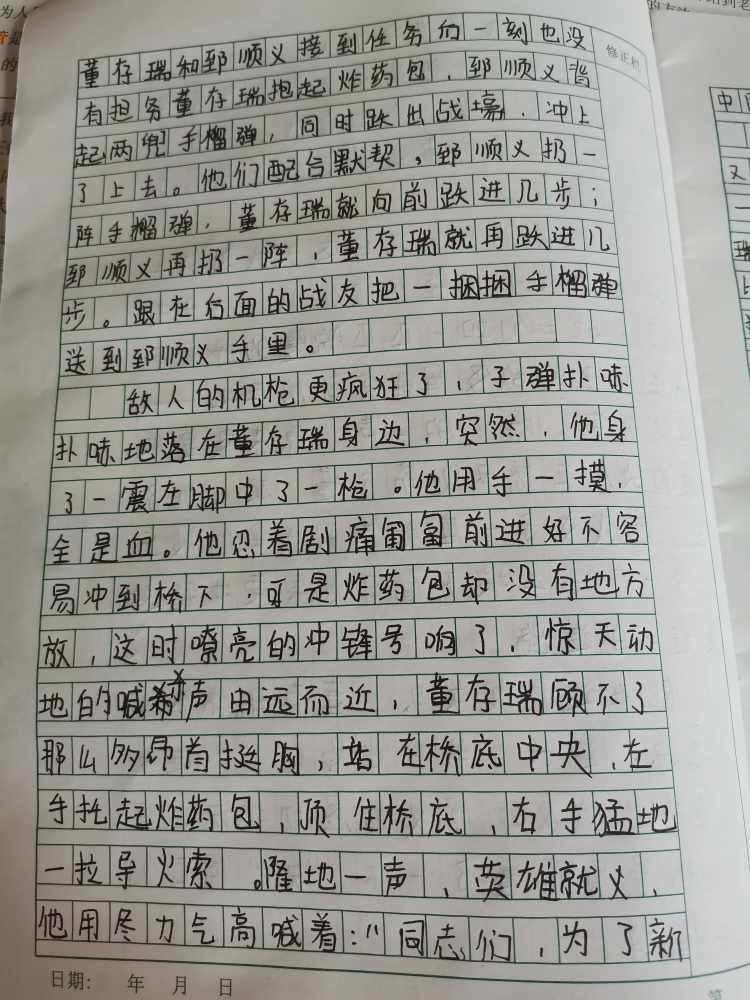 董存瑞和郅顺义接到任务的一刻也没
修正栏
有担务董存瑞抱起炸药包，郅顺义背
起两兜手榴弹，同时跃出战壕，冲上
了上去。他们配合默契，郅顺义扔一
阵手榴弹，董存瑞就向前跃进几步；
郅顺义再扔一阵，董存瑞就再跃进几
步。跟在后面的战友把一捆捆手榴弹
送到郅顺义手里。
敌人的机枪更疯狂了，子弹扑味
扑味地落在董存瑞身边，突然，他身
了一震左脚中了一枪。他用手一摸，
全是血。他忍着剧痛匍匐前进好不容
易冲到桥下，可是炸药包却没有地方
放，这时嘹亮的冲锋号响了，惊天动
地的喊杀声由远而近，董存瑞顾不了
那么多昂首挺胸，站在桥底中央，左
手托起炸药包，顶住桥底，右手猛地
一拉导火索。隆地一声，英雄就义，
他用尽力气高喊着：“同志们，为了新
日期： 年 月 日